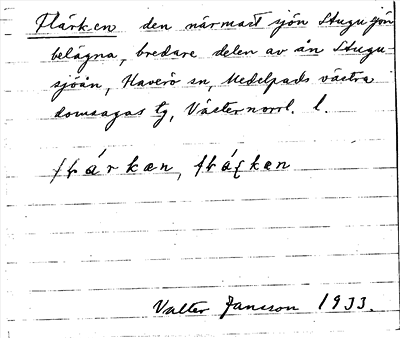 Flärken den närmast sjön Stugusjön
belägna, bredare delen av ån Stugu-
sjöån, Haverö sn, Medelpads västra
domsagas tg, Västernorrl. l.
Valter Jansson 1933.